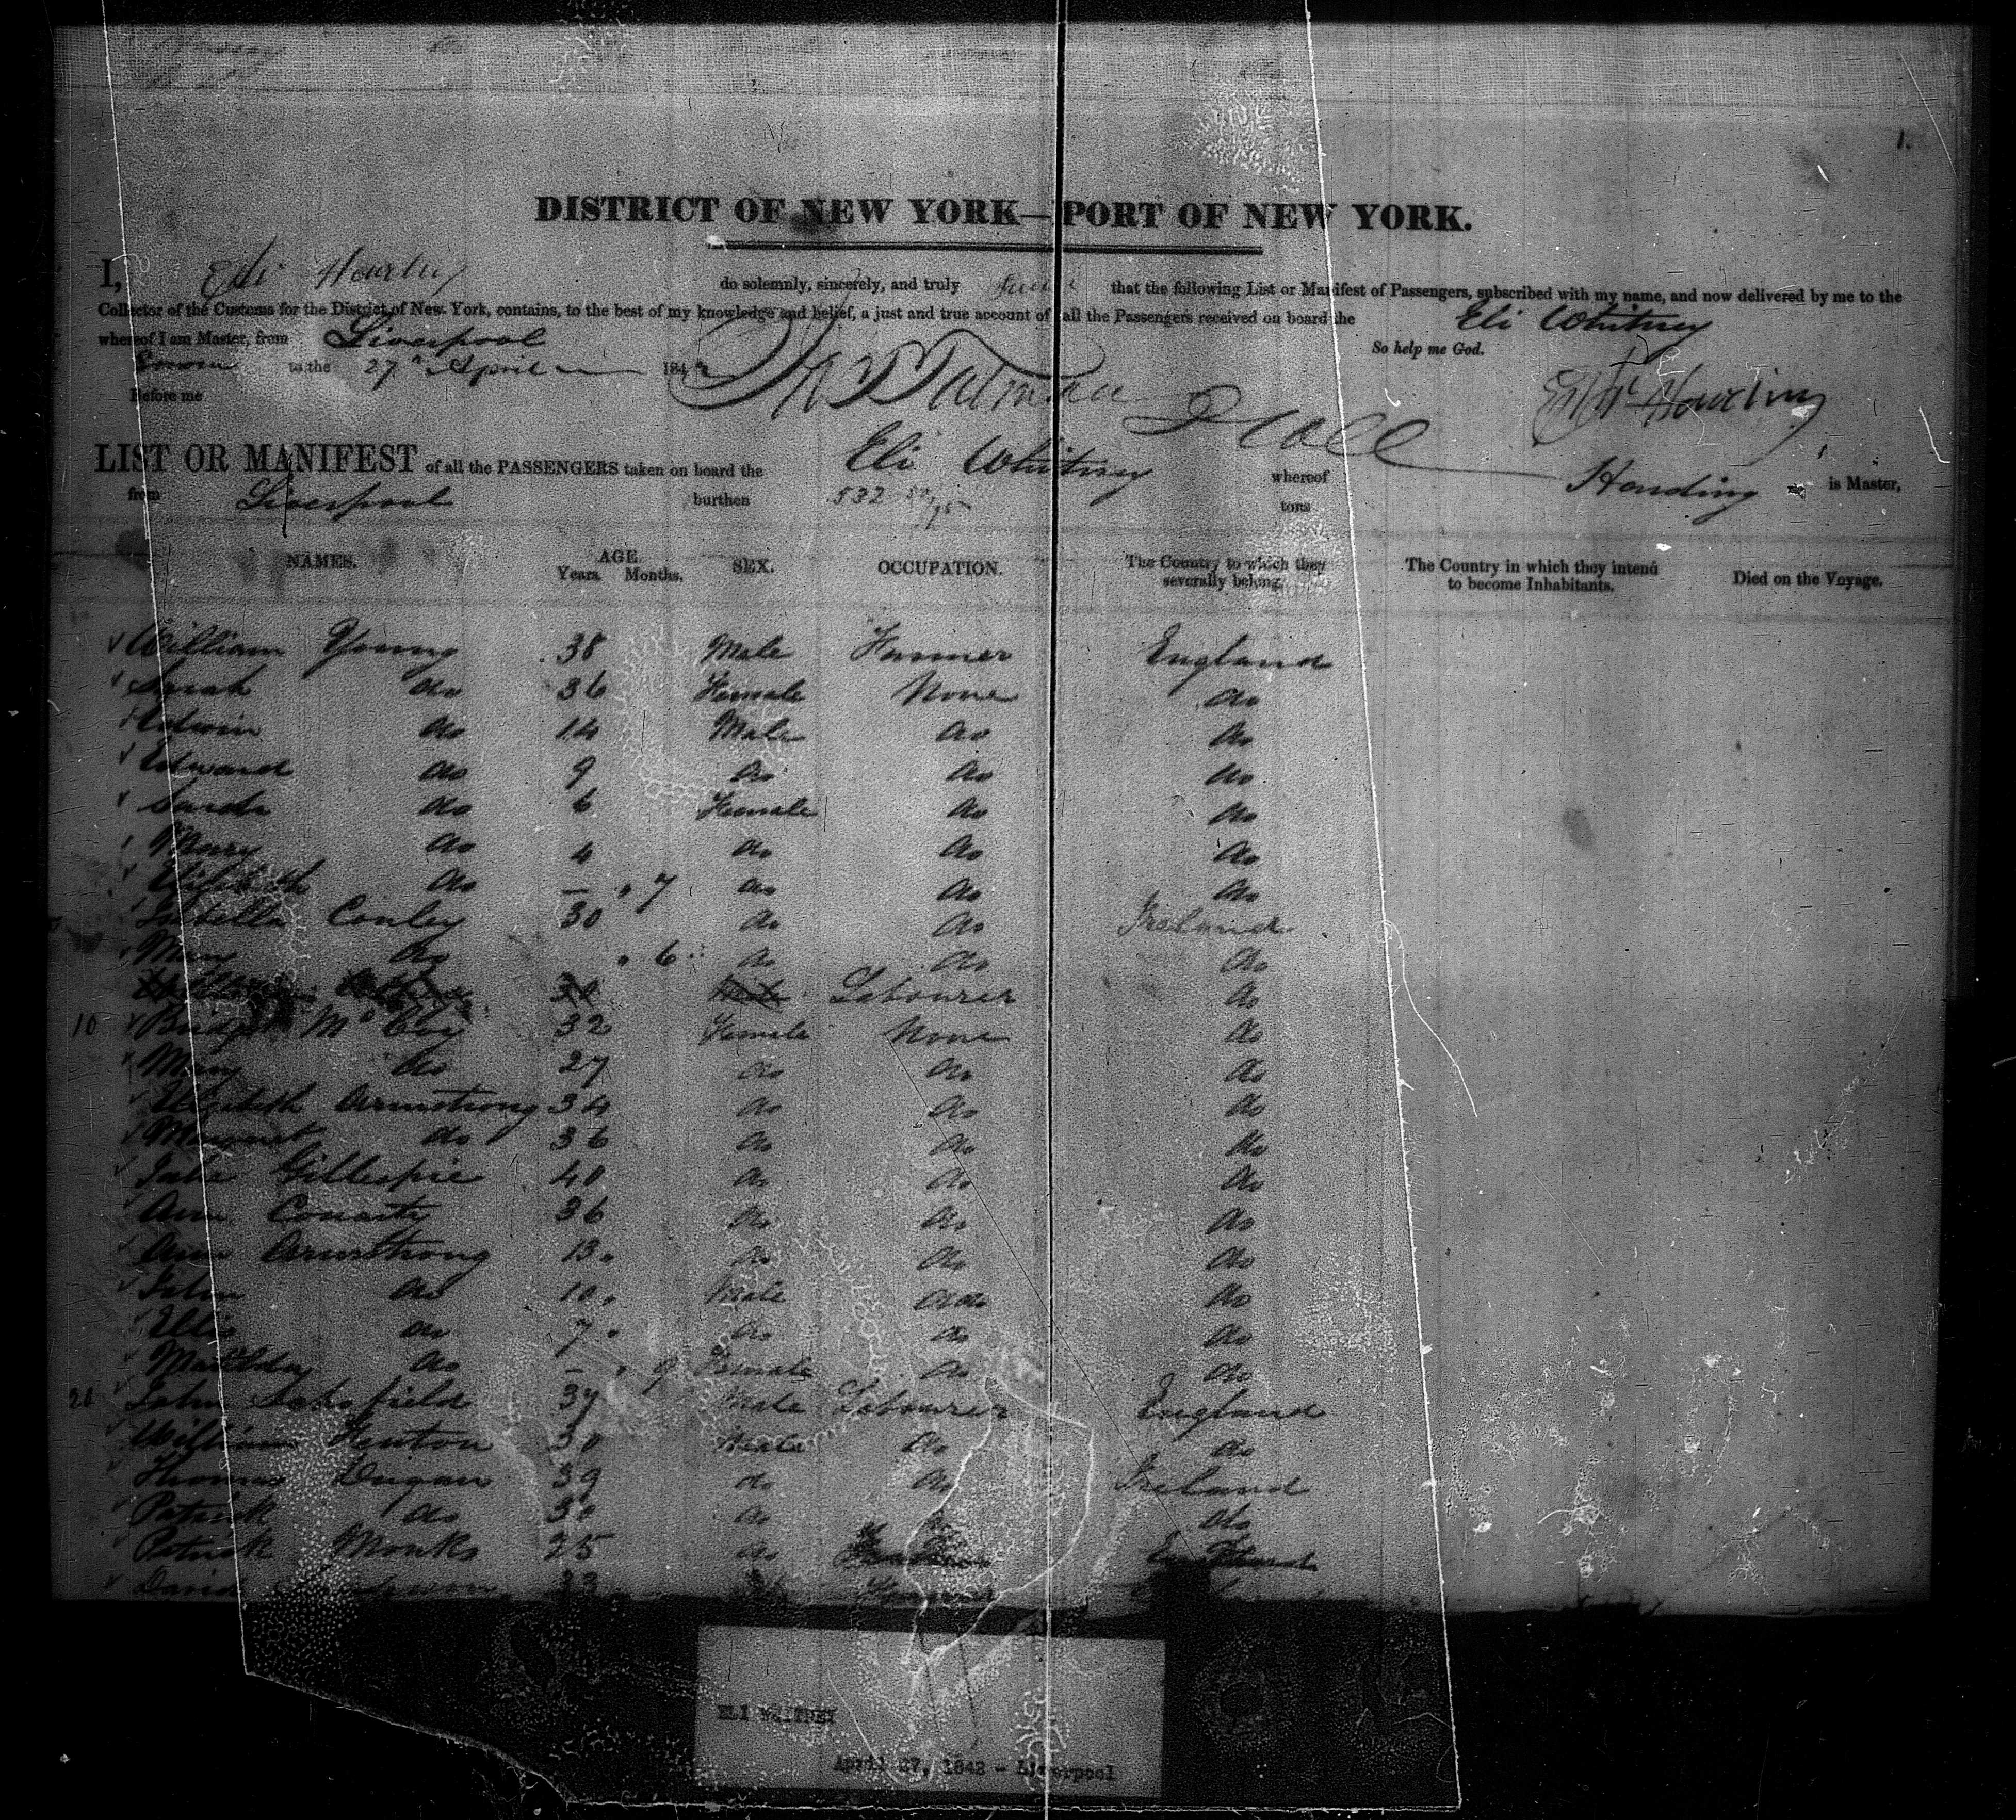 1.
DISTRICT OF NEW YORK—PORT OF NEW YORK.
I, do solemnly, sincerely, and truly that the following List or Manifest of Passengers, subscribed with my name, and now delivered by me to the
Collector of the Customs for the District of New York, contains, to the best of my knowledge and belief, a just and true account of all the Passengers received on board the Eli Whitney
whereof I am Master, from Liverpool
So help me God.
Sworn to the 27th April 1842
Before me
LIST OR MANIFEST of all the PASSENGERS taken on board the Eli Whitney whereof Harding is Master,
from Liverpool burthen 532 tons
NAMES. AGE Years. Months. SEX. OCCUPATION. The Country to which they severally belong. The Country in which they intend to become Inhabitants. Died on the Voyage.
William Young 38 Male Farmer England
Sarah do 36 Female None do
Edwin do 14 Male do do
Edward do 9 do do do
Sarah do 6 Female do do
Mary do 4 do do do
Elizabeth do – " 7 do do do
Isabella Conley 30 do do Ireland
Mary do " 6 do do do
Labourer do
10 Bridget McCloy 32 Female None do
Mary do 27 do do do
Elizabeth Armstrong 34 do do do
Margaret do 36 do do do
Gillespie 40 do do do
Ann 36 do do do
Ann Armstrong 13 do do do
John do 10 Male do do
do 7 do do do
Mathilda do – " 9 Female do do
20 John 37 Male Labourer England
William Fenton 30 Male do do
Thomas Dugan 39 do do Ireland
Patrick do 30 do do do
Patrick Monks 25 do
David
ELI WHITNEY
April 27, 1842 - Liverpool